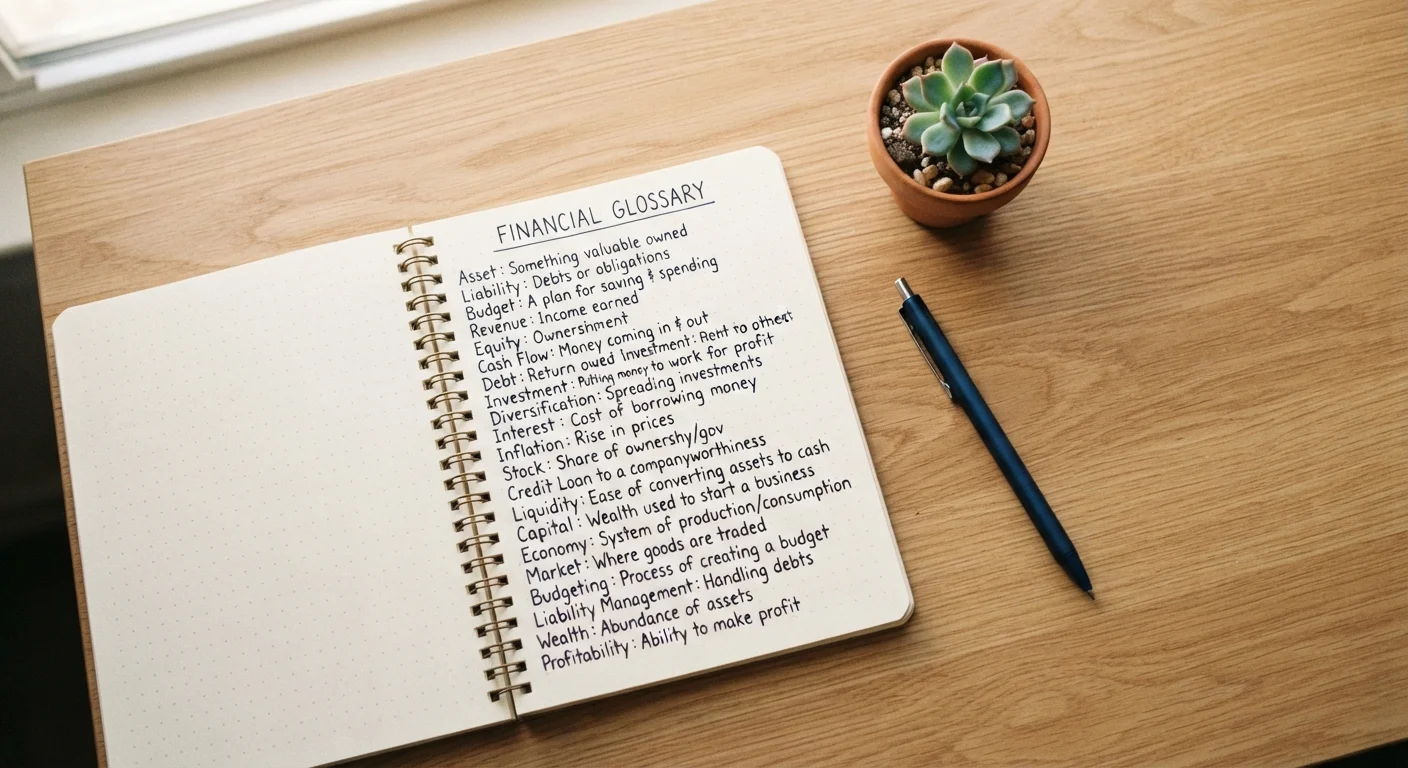 FINANCIAL GLOSSARY
Asset: Something valuable owned
Liability: Debts or obligations
Budget: A plan for saving & spending
Revenue: Income earned
Equity: Ownershment
Cash Flow: Money coming in & out
Debt: Return owed Investment: Rent to others
Investment: Putting money to work for profit
Diversification: Spreading investments
Interest: Cost of borrowing money
Inflation: Rise in prices
Stock: Share of ownershy/gov
Credit Loan to a companyworthiness
Liquidity: Ease of converting assets to cash
Capital: Wealth used to start a business
Economy: System of production/consumption
Market: Where goods are traded
Budgeting: Process of creating a budget
Liability Management: Handling debts
Wealth: Abundance of assets
Profitability: Ability to make profit